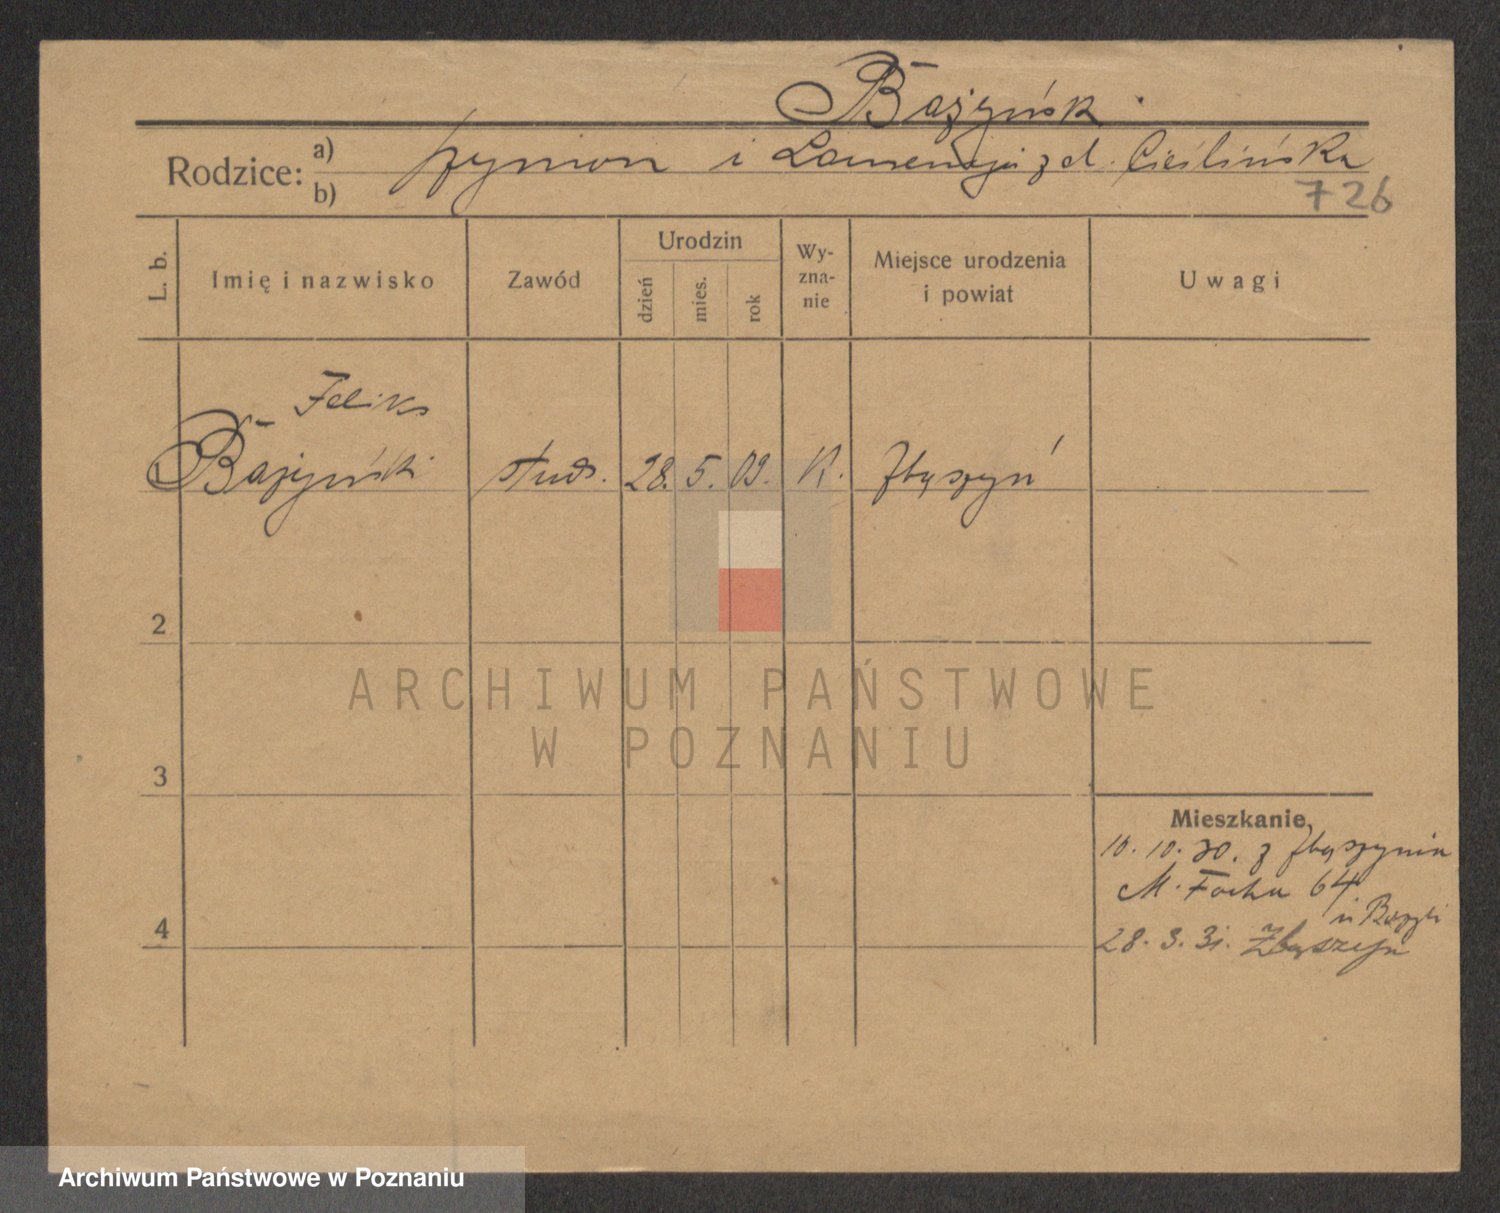 Bażyńsk
Rodzice: a) b) Szymon i z d. Cieślińska
726
L. b.
Imię i nazwisko
Zawód
Urodzin
dzień
mies.
rok
Wy-
zna-
nie
Miejsce urodzenia
i powiat
Uwagi
Feliks
Bażyński stud. 28. 5. 09. K. Zbąszyń
2
3
4
Mieszkanie
10. 10. 30. z Zbąszynia
M. Focha 64
28. 3. 31. Zbąszyń
ARCHIWUM PAŃSTWOWE
W POZNANIU
Archiwum Państwowe w Poznaniu